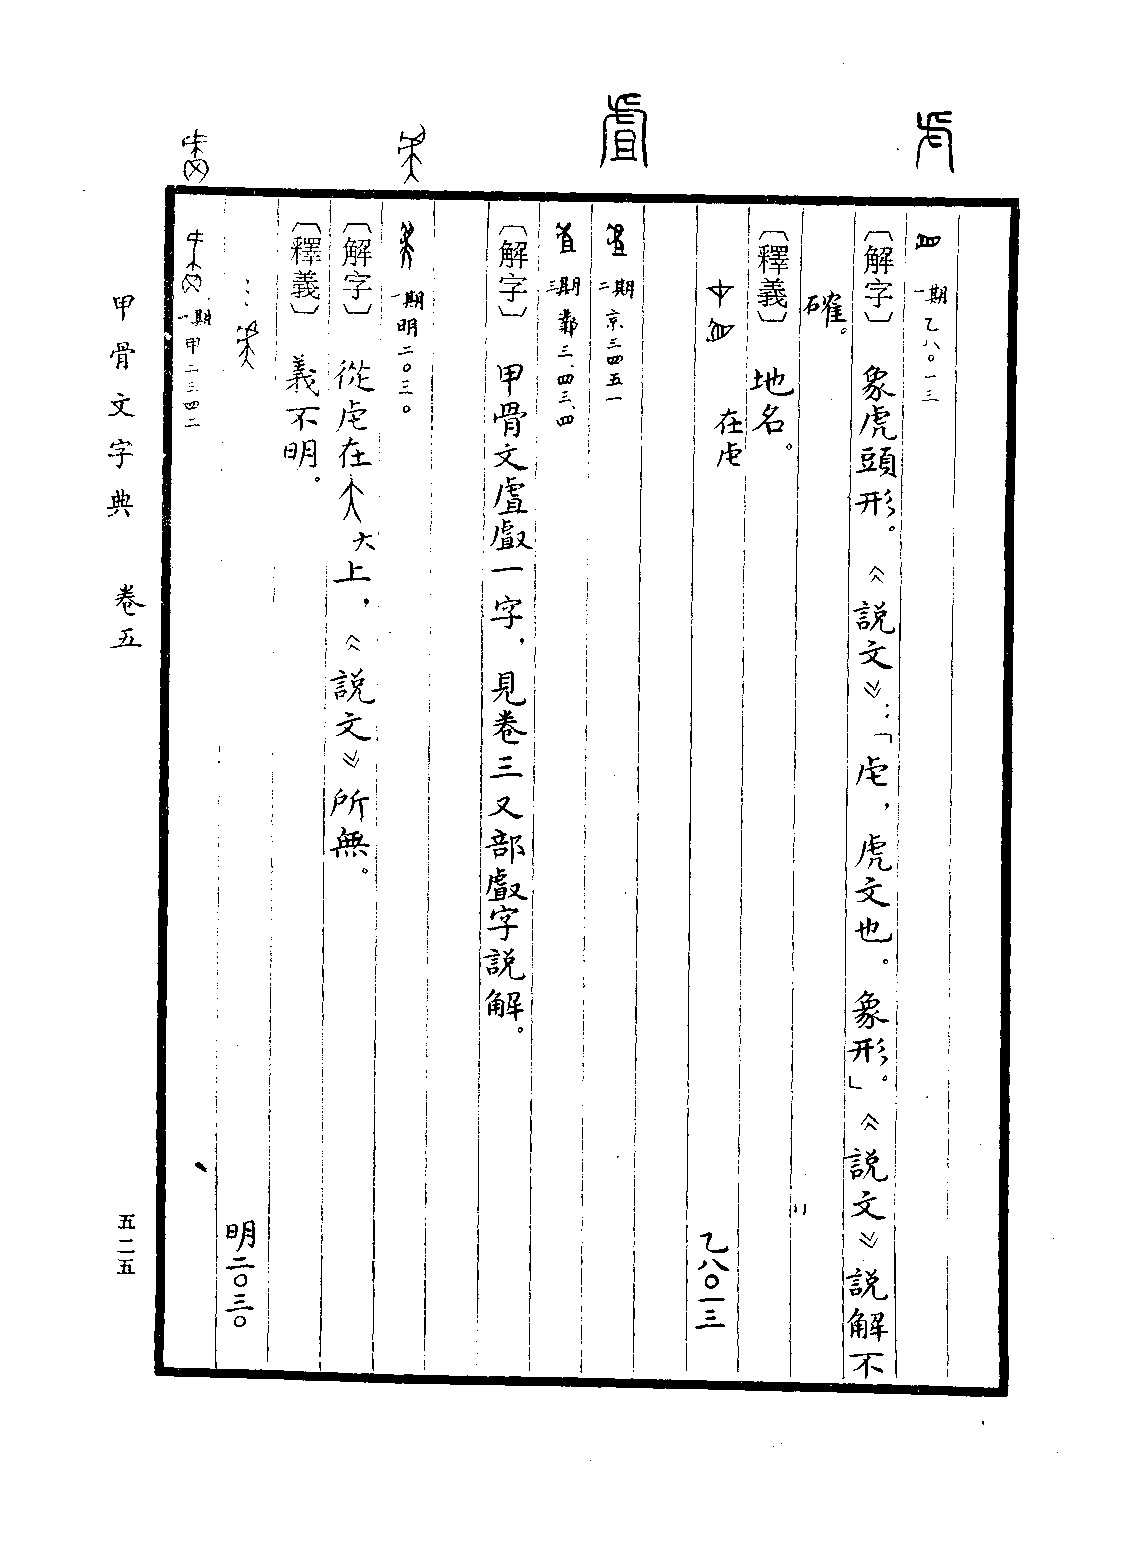 虍
一期乙八〇一三
〔解字〕象虎頭形。《說文》：「虍，虎文也。象形。」《說文》說解不
確。
〔釋義〕地名。
在虍 乙八〇一三
䖒
二期京三四五一
三期鄴三、四三、四
〔解字〕甲骨文䖒䖒一字，見卷三又部字說解。
一期明二〇三〇
〔解字〕從虍在大上，《說文》所無。
〔釋義〕義不明。
：： 明二〇三〇
一期甲二三四二
甲骨文字典 卷五
五二五